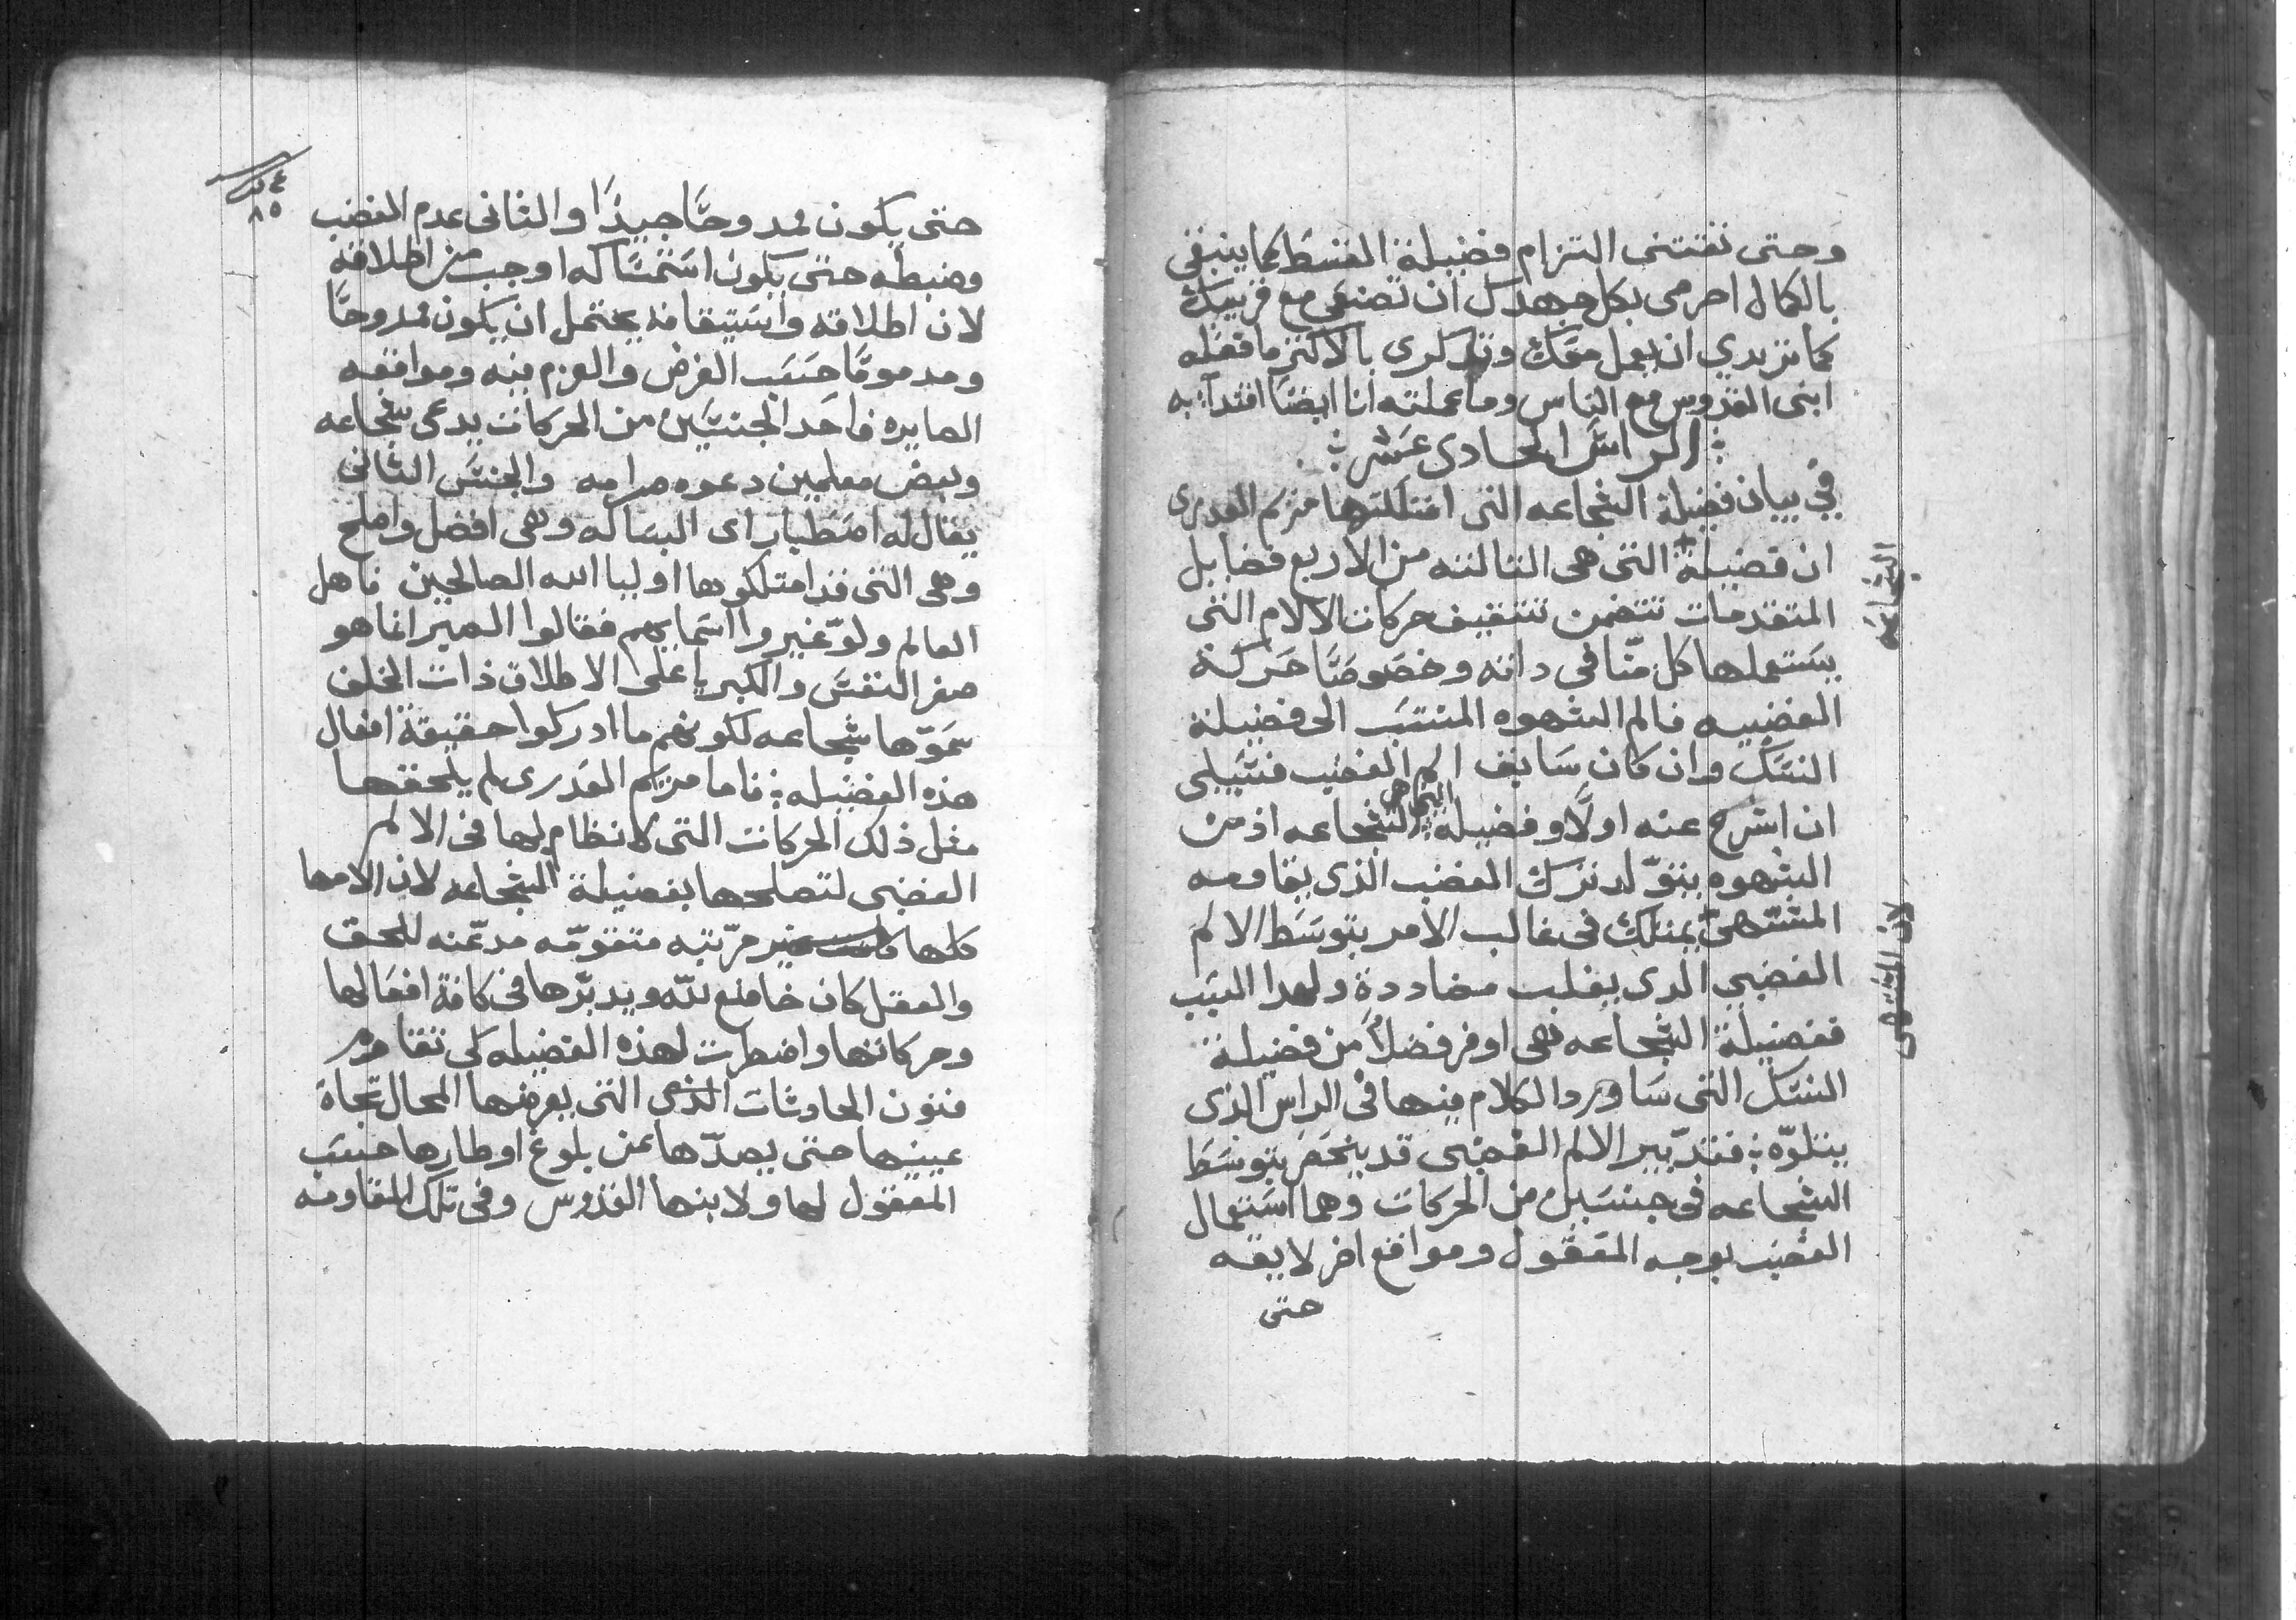 وحتى تقتني التزام فضيلة القسط كما ينبغي
بالكمال احرصي بكل جهدك ان تصنعي مع قريبك
كما تريدي ان يعمل معك وتذكري بالاكثر ما فعله
ابني القدوس مع الناس وما عملته انا ايضًا اقتدآ به
؛ الراس الحادي عشر ؛
في بيان فضيلة الشجاعه التي امتلكتها مريم العدرى
ان فضيلة + التي هي الثالثه من الاربع فضايل
الشجاعه
المتقدمات تتضمن تثقيف حركات الالام التي
يستعملها كل منّا في داته وخصوصًا حركة
الغضبيه فالم الشهوه المنتسب الى فضيلة
النسك وان كان سابق الم الغضب فسبيلي
ان اشرح عنه اولًا وفضيلة الشجاعه اذ من
الشهوه يتولد ترك الغضب الذي يقاومه
المشتهى يمتلك في غالب الامر بتوسط الالم
لان المشتهى
الغضبي الدي يغلب مضاددة ولهدا السبب
ففضيلة الشجاعه هي اوفر فضلًا من فضيلة
النسك التي ساورد الكلام منها في الراس الذي
يتلوّه ؛ فتدّبير الالم الغضبي قد ينحصر بتوسط
الشجاعه في جنسين من الحركات وهما استعمال
الغضب بوجه المعقول ومواقع اخر لايقه
حتى
٨٥
حتى يكون ممدوحًا جيدًا والثاني عدم الغضب
وضبطه حتى يكون استمساكه اوجب من اطلاقه
لان اطلاقه واستيقافه يحتمل ان يكون ممدوحًا
ومدمومًا حسب الغرض والعزم فيه ومواقعه
الصايره فاحد الجنسين من الحركات يدعى شجاعه
وبعض معلمين دعوه صرامه والجنس الثاني
يقال له اصطبار اي البساله وهي افضل واصلح
وهي التي قد امتلكوها اوليا الله الصالحين فاهل
العالم ولوّ غيروا اسمايهم فقالوا الصبر انما هو
صغر النفس والكبريا على الاطلاق ذات الخلف
سموّها شجاعه لكونهم ما ادركوا حقيقة افعال
هذه الفضيله ؛ فاما مريم العدرى لم يلحقها
مثل ذلك الحركات التي لا نظام لها في الالم
الغضبي لتصلحها بفضيلة الشجاعه لان الامها
كلها كانت مرّتبه متقوّمه مدعّنه للحق
والعقل كان خاضع لله ويدبّرها في كافة افعالها
وحركاتها واضطرت لهذه الفضيله لكي تقاوم
فنون الحادثات التي يعرضها المحال تجاه
عينيها حتى يصدّها عن بلوغ اوطارها حسب
المعقول لها ولابنها القدوس وفي تلك المقاومه